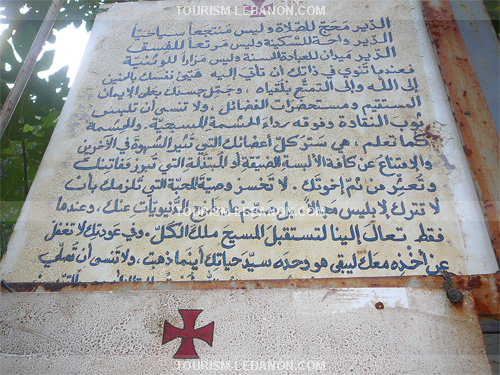 TOURISM-LEBANON.COM
الدّير مَحَجّ للصَّلاة وليس مُنتَجَعاً سياحيّاً
الدّير واحة للسّكينة وليس مرتعاً للفسق
الدّير ميدان للعبادة الحسنة وليس مزاراً للوثنيّة
فعندما تنوي في ذاتك أن تأتي إليه هَيّئ نفسك بالحنين
إلى الله وإلى التمتّع بلُقياه ، وجمّل حسنك بحُلى الإيمان
المستقيم ومستحضرات الفضائل ، ولا تنسى أن تلبس
ثوب النقاوة وفوقه رداء الحشمة المسيحيّة . والحشمة
كما تعلم ، هي ستر كلّ أعضائك التي تُثير الشهوة في الآخرين
والامتناع عن كافة الألبسة الضيّقة أو المُبتذلة التي تُبرز مفاتنك
وتُعثّر من ثمّ إخوتك . لا تخسر وصيّة المحبّة التي تُلزمك بأن
لا تترك إبليس
TOURISM-LEBANON.COM
الدنيويّات عنك ، وعندما
فقط تعال إلينا لتستقبل المسيح ملك الكلّ . وفي عودتك لا تغفل
عن أخذه معك ليبقى هو وحده سيّد حياتك أينما ذهبت ، ولا تنسى أن تصلّي
TOURISM-LEBANON.COM